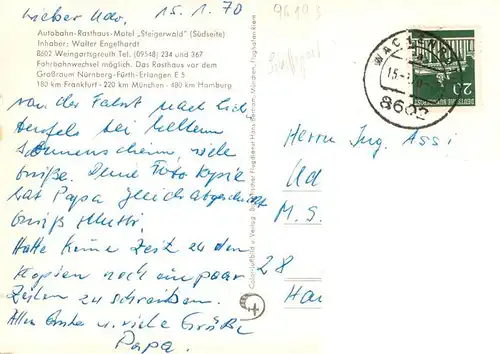 Lieber Udo, 15. 1. 70
Autobahn-Rasthaus-Motel „Steigerwald" (Südseite)
Inhaber: Walter Engelhardt
8602 Weingartsgreuth Tel. (09548) 234 und 367
Fahrbahnwechsel möglich. Das Rasthaus vor dem
Großraum Nürnberg-Fürth-Erlangen E 5
180 km Frankfurt - 220 km München - 480 km Hamburg
von der Fahrt nach
bei hellem
Sonnenschein, viele
Grüße. Deine Fotokopie
hat Papa gleich abgeschickt
Gruß Mutti.
Hatte keine Zeit zu den
Kopien noch ein paar
Zeilen zu schreiben.
Alles Gute u. viele Grüße
Papa.
Herrn Ing. Assi
Ud
M. G.
28
Ha
8602
DEUTSCHE BUNDESPOST
20